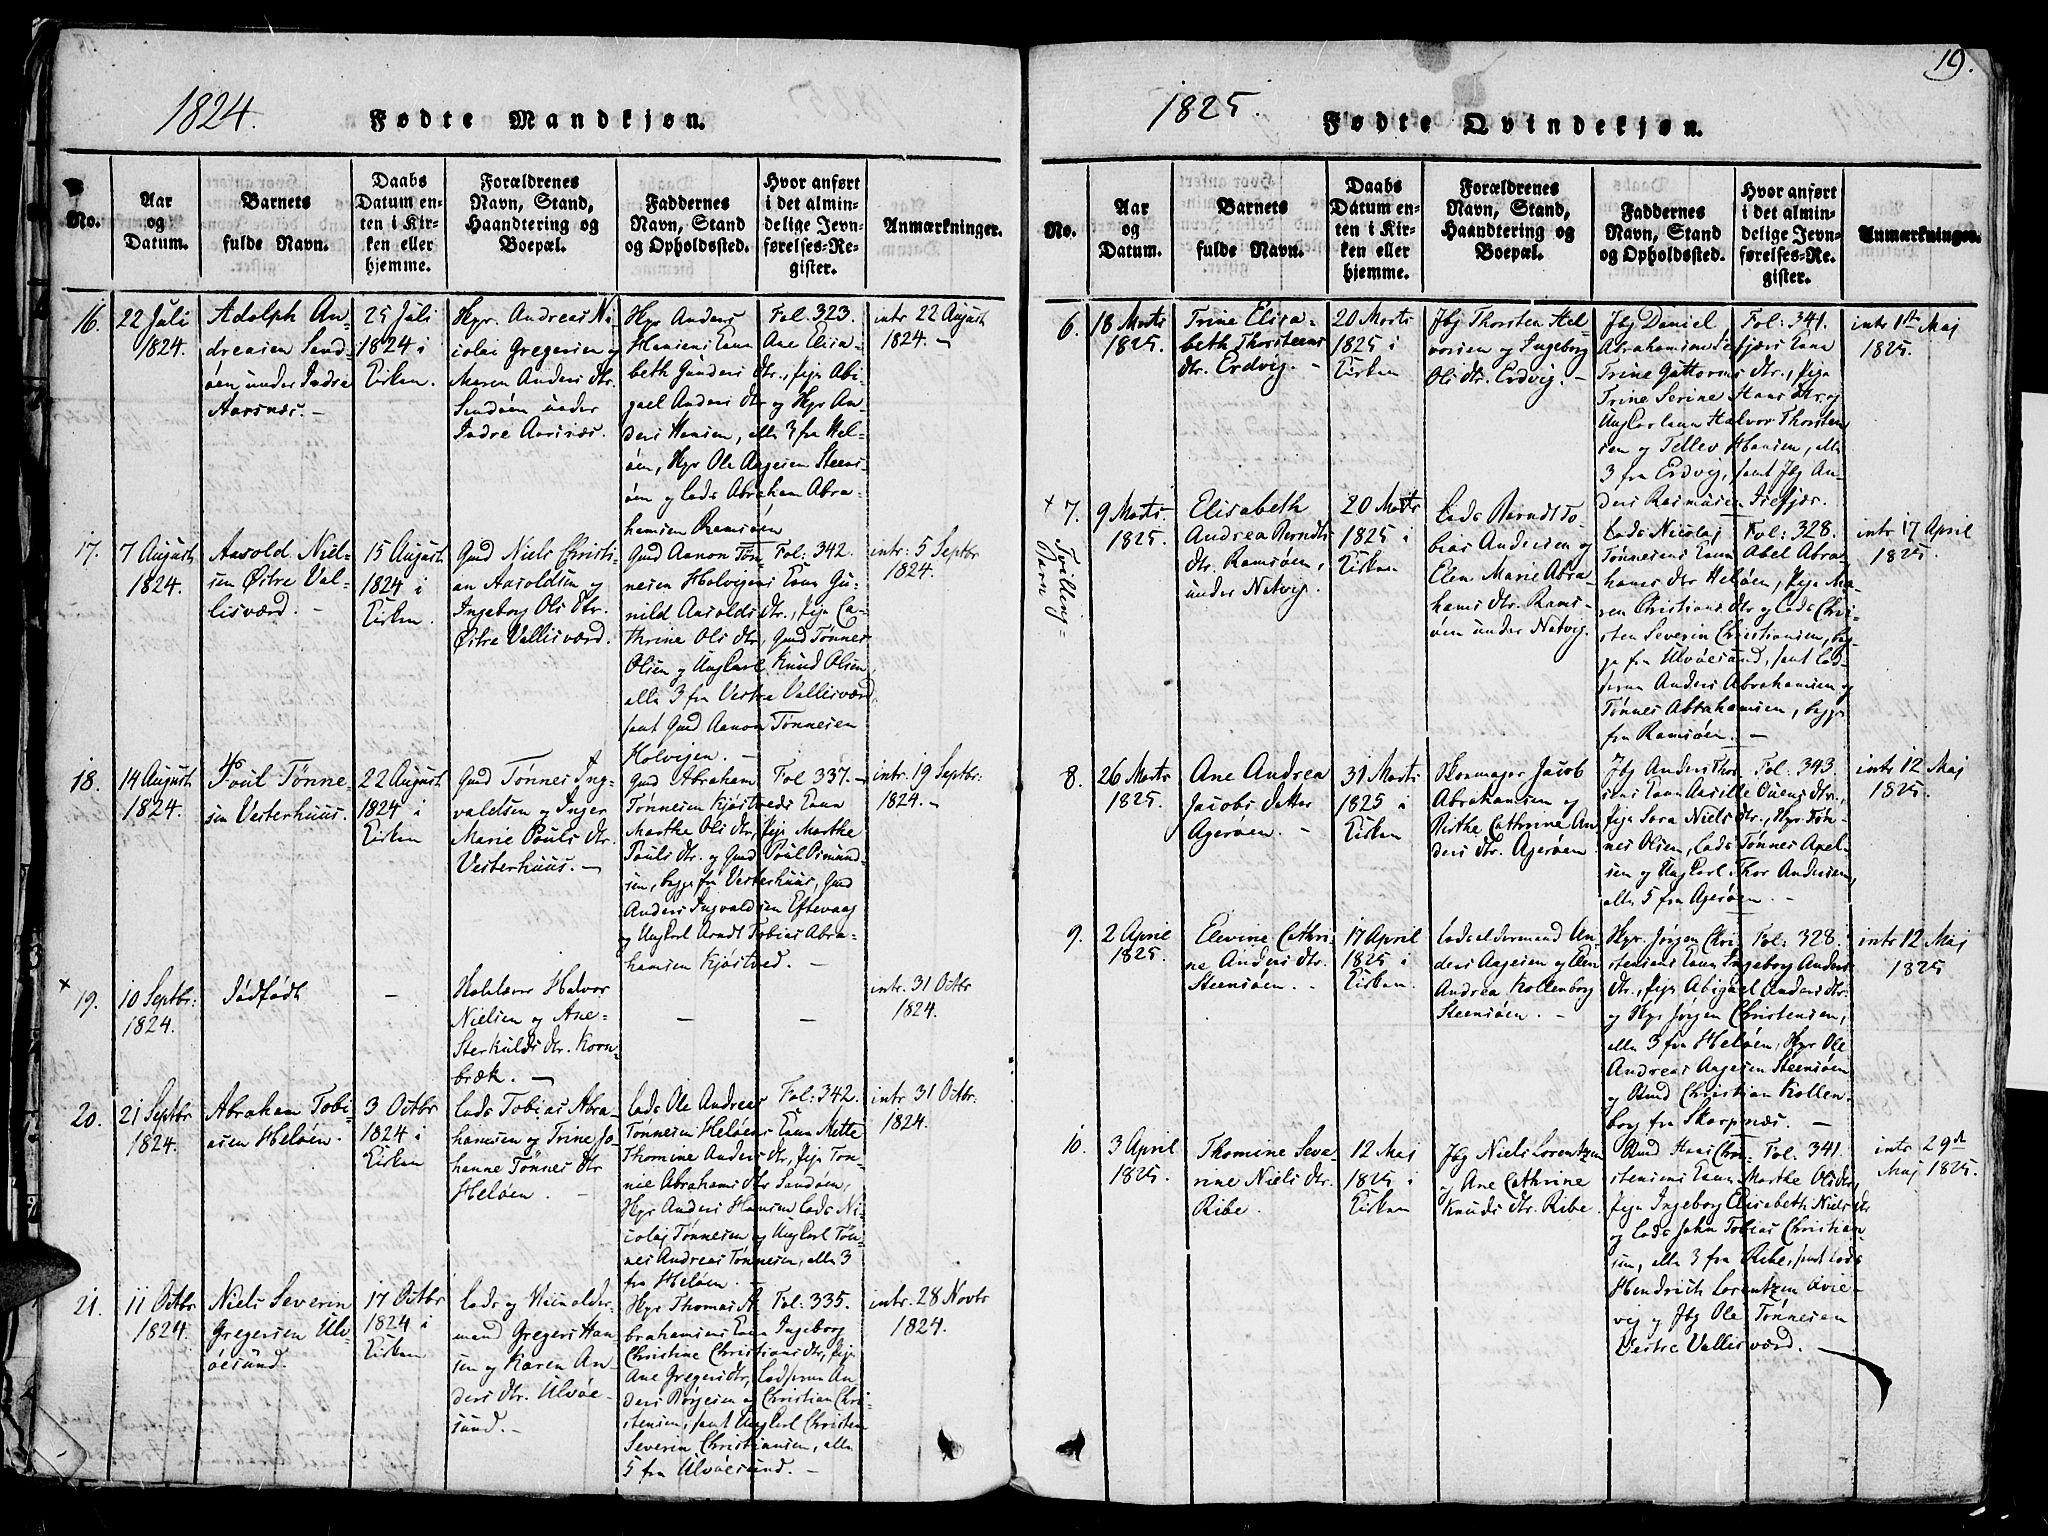 1824.
Fødte Mandkjøn.
No.
Aar
og
Datum.
Barnets
fulde Navn.
Daabs
Datum en-
ten i Kir-
ken eller
hjemme.
Forældrenes
Navn, Stand,
Haandtering og
Boepæl.
Faddernes
Navn, Stand
og Opholdssted.
Hvor anført
i det almin-
delige Jevn-
førelses-Re-
gister.
Anmærkninger.
16.
22 Juli
1824.
Adolph An-
dreasen Sand-
øen under Indre
Aarsnæs. -
25 Juli
1824 i
Kirken.
Hpr. Andreas Ni-
colai Gregersen og
Maren Anders dtr.
Sandøen under
Indre Aarsnæs.
Hpr Anders
Hansens Kone Ane Elisa-
beth Gunders dtr., pige Abi-
gael Anders dtr og Hpr An-
ders Hansen, alle 3 fra Hel-
øen, Hpr Ole Aagesen Steens-
øen og Lods Abraham Abra-
hamsen Ramsøen
Fol. 323.
intr 22 August
1824. -
17.
7 August
1824.
Aarold Niel-
sen Østre Val-
lisværd. -
15 August
1824 i
Kirken.
Gmd Niels Christi-
an Aaroldsen og
Ingeborg Ols dtr.
Østre Vallisværd.
Gmd Aanon Tøn-
nesen Holvigens Kone Gu-
nild Aarolds dtr., pige Ca-
thrine Ols dtr, Gmd Tønnes
Olsen og Ungkarl Knud Olsen
alle 3 fra Vestre Vallisværd,
samt Gmd Aanon Tønnesen
Holvigen. -
Fol: 342.
intr: 5 Septbr
1824.
18.
14 August
1824.
Poul Tønne-
sen Vesterhuus.
22 August
1824 i
Kirken
Gmd Tønnes Ing-
valdsen og Inger
Marie Pouls dtr.
Vesterhuus. -
Gmd Abraham
Tønnesen Kjøstveds Kone
Marthe Ols dtr, pige Marthe
Pouls dtr. og Gmd Poul Osmund-
sen, begge fra Vesterhuus, Gmd
Anders Ingvaldsen Eftevaag
og Ungkarl Arndt Tobias Abra-
hamsen Kjøstved. -
Fol 337. -
intr. 19 Septbr:
1824. -
+
19.
10 Septbr:
1824.
Dødfødt
-
Halvor
Nielsen og Ane
Sterkulds dtr. Korn-
bræk. -
-
-
intr. 31 Octbr
1824.
20.
21 Septbr
1824.
Abraham Tobi-
asen Heløen.
3 Octbr
1824 i
Kirken
Lods Tobias Abra-
hamsen og Trine Jo-
hanne Tønnes dtr
Heløen. -
Lods Ole Andreas
Tønnesen Heløens Kone Mette
Thomine Anders dtr, pige Ton-
nie Abrahams dtr Sandøen,
Hpr Anders Hansen Lods Ni-
colaj Tønnesen og Ungkarl Tøn-
nes Andreas Tønnesen, alle 3
fra Heløen. -
Fol: 342.
intr 31 Octbr:
1824.
21.
11 Octbr
1824.
Niels Severin
Gregersen Ulv-
øesund.
17 Octbr
1824 i
Kirken
Lods og
mand Gregers Han-
sen og Karen An-
ders dtr. Ulvøe-
sund. -
Hpr Thomas A-
brahamsens Kone Ingeborg
Christine Christians dtr, pige
Ane Gregers dtr, Lodserne An-
ders Børgesen og Christian Chri-
stensen, samt Ungkarl Christen
Severin Christiansen, alle
5 fra Ulvøesund. -
Fol: 335.
intr. 28 Novbr
1824.
19.
1825.
Fødte Qvindekjøn.
No.
Aar
og
Datum.
Barnets
fulde Navn.
Daabs
Datum en-
ten i Kir-
ken eller
hjemme.
Forældrenes
Navn, Stand,
Haandtering og
Boepæl.
Faddernes
Navn, Stand
og Opholdssted.
Hvor anført
i det almin-
delige Jevn-
førelses-Re-
gister.
Anmærkninger.
6.
18 Marts
1825.
Trine Elisa-
beth Thorstens
dtr. Erdvig. -
20 Marts
1825 i
Kirken
Jbg Thorsten Hel-
vorsen og Ingeborg
Ols dtr. Erdvig. -
Jbg Daniel
Abrahamsen Isefjærs Kone
Trine Guttorms dtr., pige
Trine Serine Hans dtr og
Ungkarlene Halvor Thorsten
sen og Tellev Hansen, alle
3 fra Erdvig, samt Jbg An-
ders Rasmusen Isefjær.
Fol: 341.
intr 1ste Maj
1825.
+ 7.
Tvilling-
Barn
9 Marts
1825.
Elisabeth
Andrea Berndts
dtr. Ramsøen,
under Natvig.
20 Marts
1825 i
Kirken
Lods Berndt To-
bias Andersen og
Elen Marie Abra-
hams dtr. Rams-
øen under Natvig.
Lods Nicolaj
Tønnesens Kone Abel Abra-
hams dtr Heløen, pige Ma-
ren Christians dtr og Lods Chri-
sten Severin Christiansen, beg-
ge fra Ulvøesund, samt Lod-
serne Anders Abrahamsen og
Tønnes Abrahamsen, begge
fra Ramsøen. -
Fol: 328.
intr 17 April
1825.
8.
26 Marts
1825.
Ane Andrea
Jacobs datter
Agerøen. -
31 Marts
1825 i
Kirken
Jacob
Abrahamsen og
Birthe Cathrine An-
ders dtr. Agerøen
Jbg Anders Thor-
sens Kone Aasille Ouens dtr.,
pige Sara Niels dtr., Hpr Tøn-
nes Olsen, Lods Tønnes Axel-
sen og Ungkarl Thor Andersen,
alle 5 fra Agerøen. -
Fol: 343.
intr 12 Maj
1825.
9.
2 April
1825.
Elevine Cathri-
ne Anders dtr.
Steensøen. -
17 April
1825 i
Kirken.
Lodsoldermand An-
ders Aagesen og Elen
Andrea Kollenborg
Steensøen. -
Hpr. Jørgen Chri-
stensens Kone Ingeborg Anders
dtr., pige Abigael Anders dtr.
og Hpr Jørgen Christensen,
alle 3 fra Heløen, Hpr Ole
Andreas Aagesen Steensøen
og Gmd Christian Kollen-
borg fra Skarpnæs. -
Fol: 328.
intr 12 Maj
1825
10.
3 April
1825.
Thomine Seve-
rine Niels dtr.
Ribe. -
12 Maj
1825 i
Kirken
Jbg Niels Lorentzen
og Ane Cathrine
Knuds dtr. Ribe.
Gmd Hans Chri-
stensens Kone Marthe Ols dtr,
pige Ingeborg Elisabeth Niels dtr
og Lods John Tobias Christian-
sen, alle 3 fra Ribe, samt Lods
Hendrich Lorentzen Qvie-
vig og Jbg Ole Tønnesen
Vestre Vallisværd. -
Fol. 341.
intr 29de
Maj 1825.